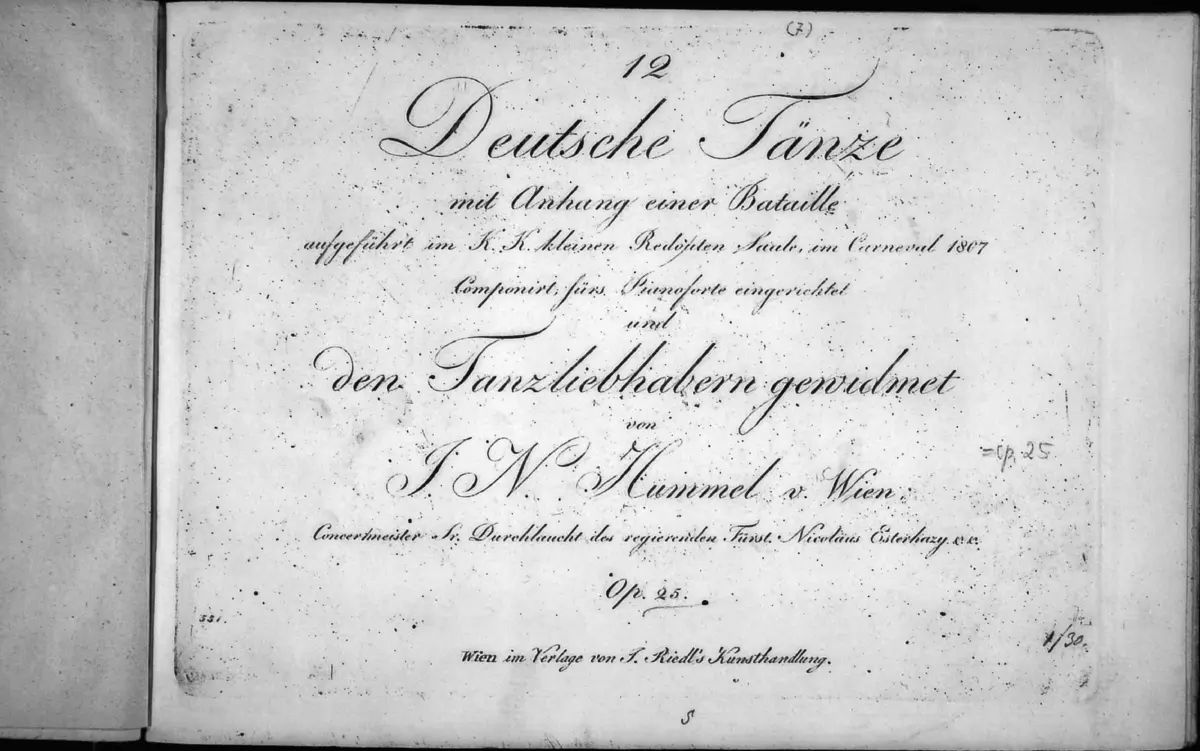 (7)
12
Deutsche Tänze
mit Anhang einer Bataille
aufgeführt im K. K. kleinen Redoutten Saale, im Carneval 1807
Componirt, fürs Pianoforte eingerichtet
und
den Tanzliebhabern gewidmet
von
J. N. Hummel v. Wien.
= op. 25
Concertmeister Sr. Durchlaucht des regierenden Fürst. Nicolaus Esterhazy &c &c.
Op. 25.
551.
1/30.
Wien im Verlage von J. Riedl's Kunsthandlung.